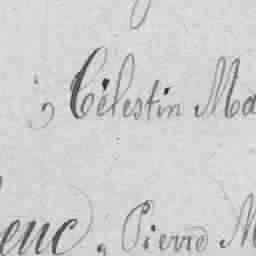 , Célestin Ma
euc, Pierre M